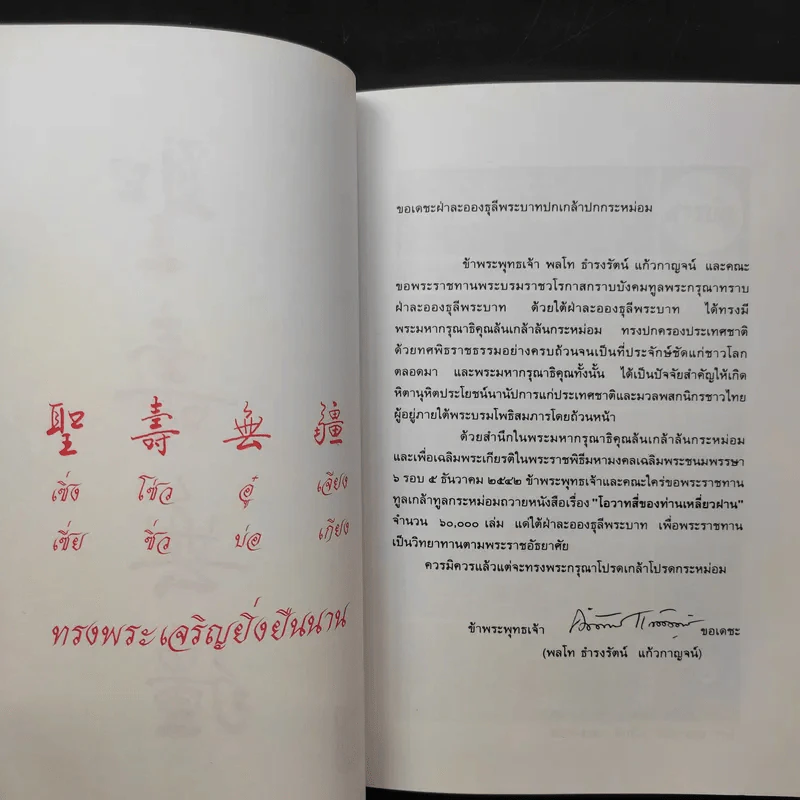 聖 壽 無 疆
เซิ่ง โซ่ว อู๋ เจียง
เซี่ย ซิ่ว บ่อ เกียง
ทรงพระเจริญยิ่งยืนนาน
ขอเดชะฝ่าละอองธุลีพระบาทปกเกล้าปกกระหม่อม
ข้าพระพุทธเจ้า พลโท ธำรงรัตน์ แก้วกาญจน์ และคณะ
ขอพระราชทานพระบรมราชวโรกาสกราบบังคมทูลพระกรุณาทราบ
ฝ่าละอองธุลีพระบาท ด้วยใต้ฝ่าละอองธุลีพระบาท ได้ทรงมี
พระมหากรุณาธิคุณล้นเกล้าล้นกระหม่อม ทรงปกครองประเทศชาติ
ด้วยทศพิธราชธรรมอย่างครบถ้วนจนเป็นที่ประจักษ์ชัดแก่ชาวโลก
ตลอดมา และพระมหากรุณาธิคุณทั้งนั้น ได้เป็นปัจจัยสำคัญให้เกิด
หิตานุหิตประโยชน์นานัปการแก่ประเทศชาติและมวลพสกนิกรชาวไทย
ผู้อยู่ภายใต้พระบรมโพธิสมภารโดยถ้วนหน้า
ด้วยสำนึกในพระมหากรุณาธิคุณล้นเกล้าล้นกระหม่อม
และเพื่อเฉลิมพระเกียรติในพระราชพิธีมหามงคลเฉลิมพระชนมพรรษา
๖ รอบ ๕ ธันวาคม ๒๕๔๒ ข้าพระพุทธเจ้าและคณะใคร่ขอพระราชทาน
ทูลเกล้าทูลกระหม่อมถวายหนังสือเรื่อง "โอวาทสี่ของท่านเหลี่ยวฝาน"
จำนวน ๖๐,๐๐๐ เล่ม แด่ใต้ฝ่าละอองธุลีพระบาท เพื่อพระราชทาน
เป็นวิทยาทานตามพระราชอัธยาศัย
ควรมิควรแล้วแต่จะทรงพระกรุณาโปรดเกล้าโปรดกระหม่อม
ข้าพระพุทธเจ้า ขอเดชะ
(พลโท ธำรงรัตน์ แก้วกาญจน์)